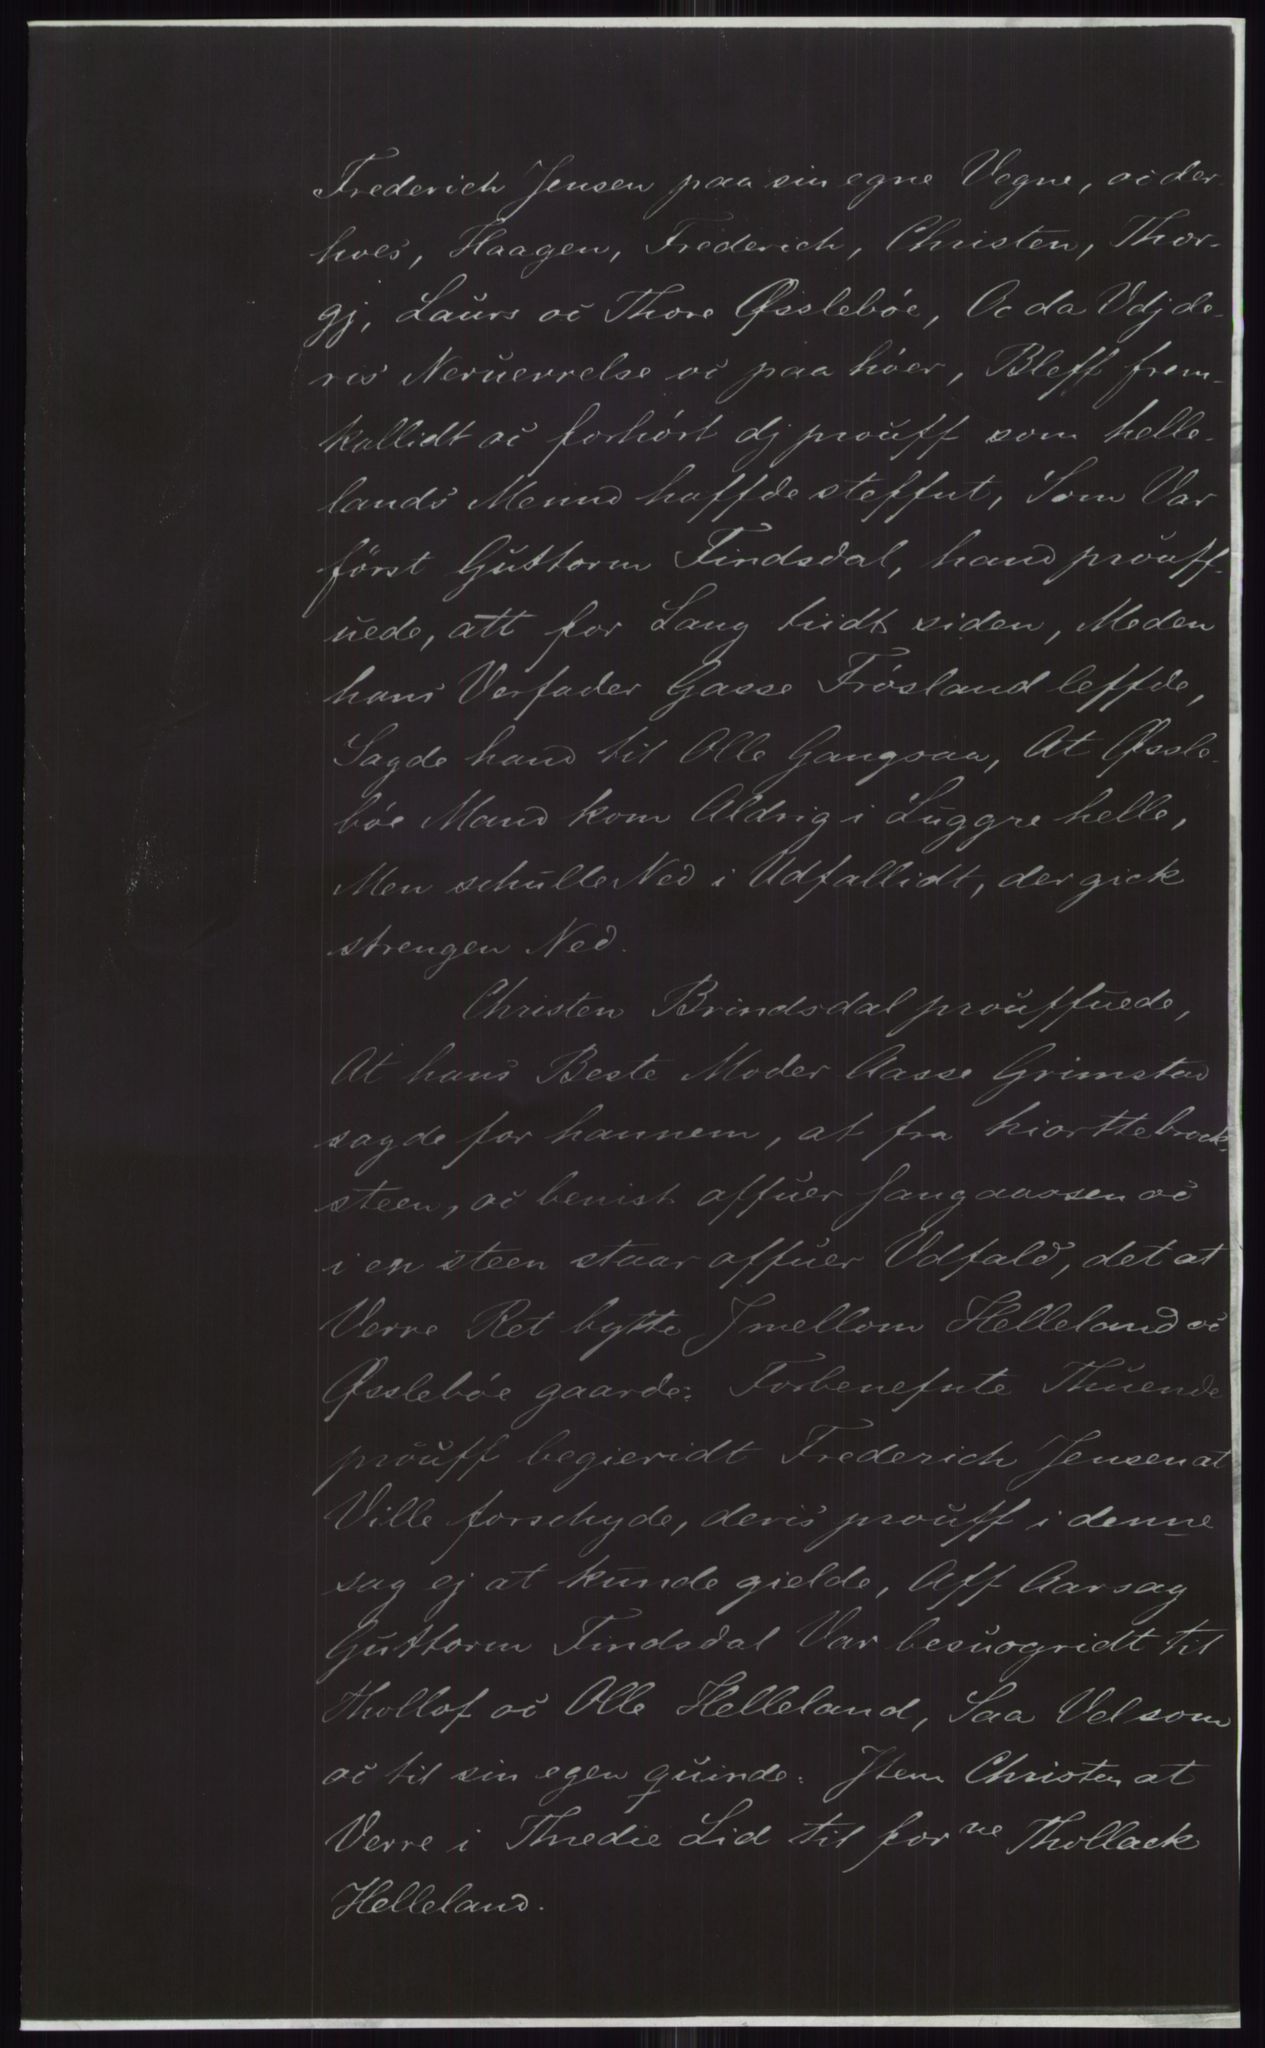 Frederich Jensen paa sin egne Vegne, oc der-
hoes, Haagen, Frederich, Christen, Thor-
gj, Laurs oc Thore Øsslebøe, Oc da Vdj de-
ris Neruerrelse oc paa høer, Bleff frem-
kallidt oc forhørt dj prouff som helle-
lands Mennd haffde steffnt, Som Var
først Guttorm Findsdal, hand prouff-
uede, att for Lang tiidt siden, Meden
hans Verfader Gasse Frøsland leffde,
Sagde hand til Olle Gangsaa, At Øssle-
bøe Mand kom Aldrig i Luggre helle,
Men schulle Ned i Udfallidt, der gick
strengen Ned.
Christen Brindsdal prouffuede,
At hans Beste Moder Aasse Grimstad
sagde for hannem, at fra hiorttebrock-
steen, oc benist offuer Jangaassen oc
i en steen staar offuer Vdfald, det at
Verre Ret bytte Jmellom Helleland oc
Øsslebøe gaarde: Forbenefnte Thuende
prouff begieridt Frederich Jensen at
Ville forschyde, deris prouff i denne
sag ej at kunde gielde, Aff Aarsag
Guttorm Findsdal Var besuogridt til
Thollof oc Olle Helleland, Saa Vel som
oc til sin egen quinde: Jtem Christen at
Verre i Thredie Lid til for ne Thollack
Helleland.